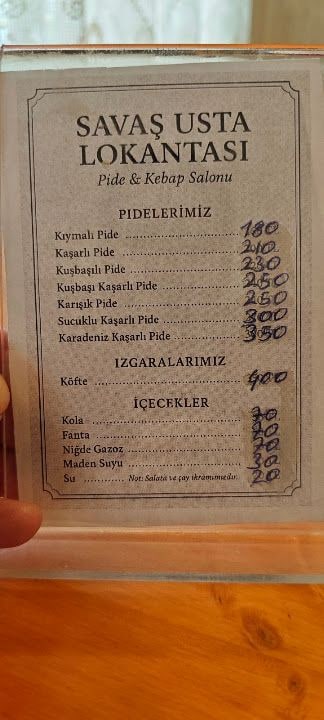 SAVAŞ USTA
LOKANTASI
Pide & Kebap Salonu
PIDELERİMİZ
Kıymalı Pide ........................ 180
Kaşarlı Pide ........................ 210
Kuşbaşılı Pide ........................ 230
Kuşbaşı Kaşarlı Pide ........................ 250
Karışık Pide ........................ 250
Sucuklu Kaşarlı Pide ........................ 300
Karadeniz Kaşarlı Pide ........................ 350
IZGARALARIMIZ
Köfte ........................ 400
İÇECEKLER
Kola ........................
Fanta ........................
Niğde Gazoz ........................
Maden Suyu ........................ 30
Su ............ Not: Salata ve çay ikramımızdır. 20